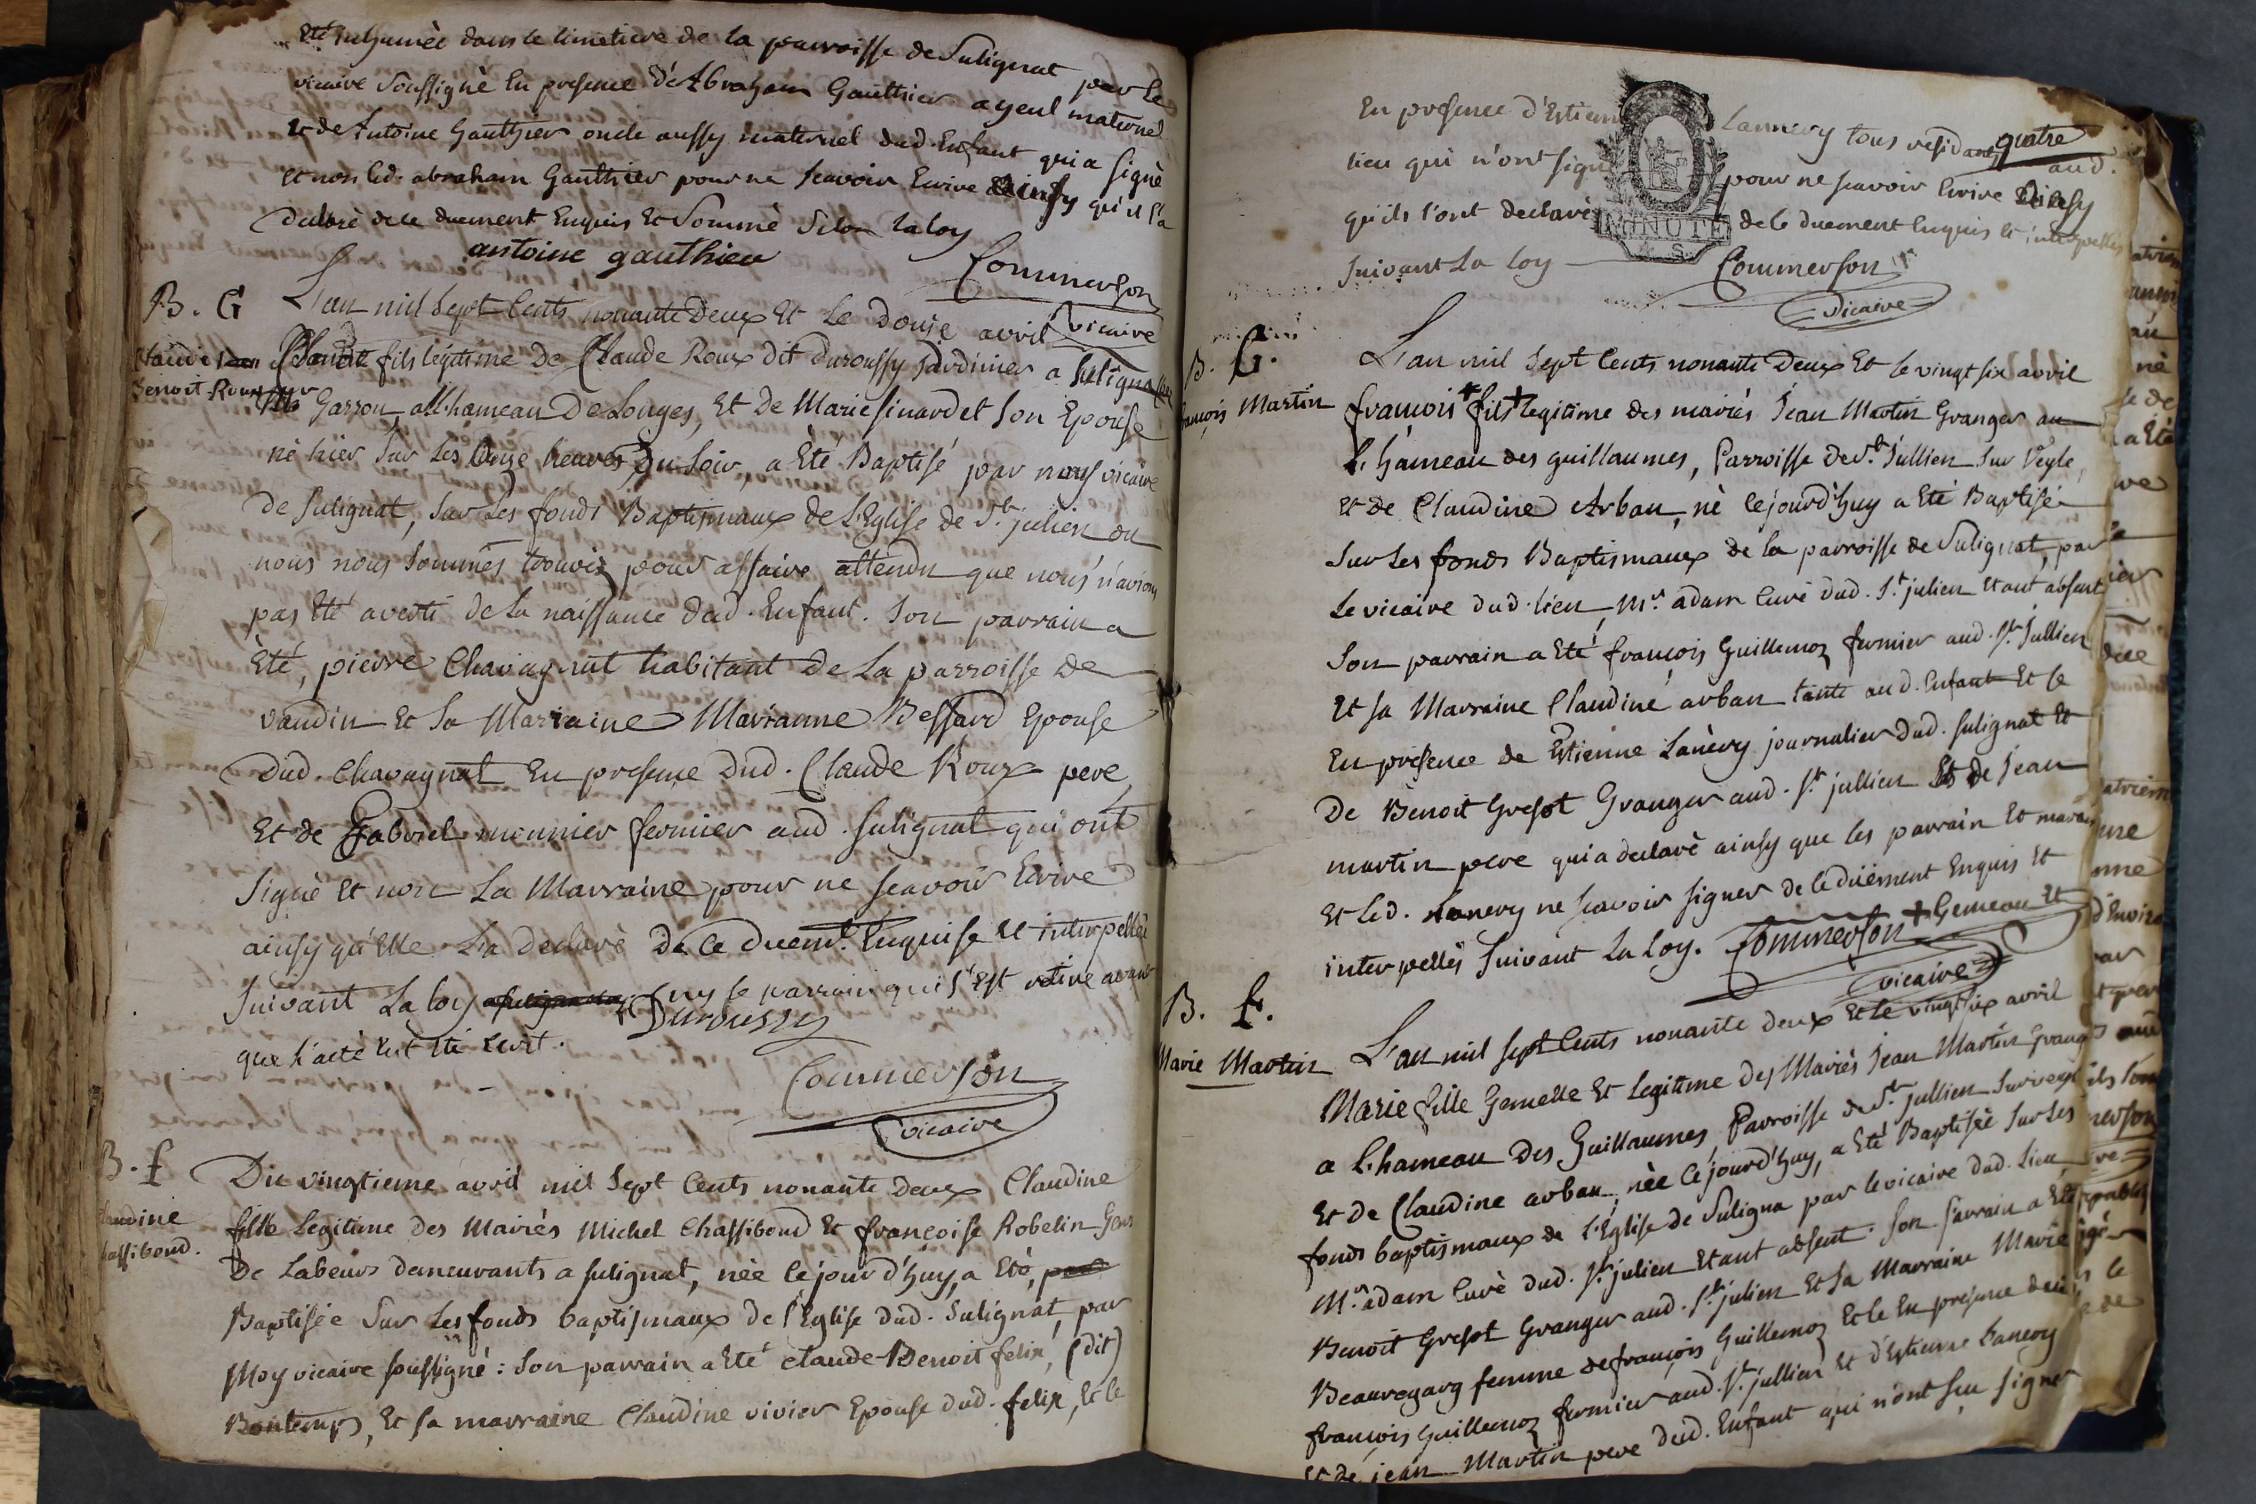 Eté inhumèe dans le cimetiere de la parroisse de Sulignat par le
vicaire soussignè En presence d'Abraham Gauthier ayeul maternel
et de Antoine Gauthier oncle aussy maternel dud. Enfant qui a signè
et non led. abraham Gauthier pour ne scavoir Ecrire ainsy qu'il l'a
declarè de ce duement Enquis Et Sommè Selon la loy
antoine gauthier
Commerson
vicaire
B. G
Claude
Benoit Roux
L'an mil sept Cents nonante Deux Et le douze avril
Claude fils legitime de Claude Roux dit duroussy Jardinier a Suligna
Garson, a l'hameau De Longes, Et de Marie sinardet Son Epouse
nè hier Sur les Onze heures du Soir, a Eté Baptisé par nous vicaire
de Sulignat, Sur les fonds Baptismaux de L'Eglise de St. julien ou
nous nous Sommes trouvéz pour affaire attendu que nous n'avions
pas Eté averti de la naissance dud. Enfant. Son parrain a
Eté, pierre Chavagnat habitant de La parroisse de
vandin Et Sa Marraine Marianne Bessard Epouse
Dud. Chavagnat En presence dud. Claude Roux pere
Et de Gabriel meunier fermier aud. Sulignat qui ont
Signè Et non La Marraine pour ne scavoir Ecrire
ainsy qu'Elle L'a declarè de ce duemt. Enquise Et interpellèe
Suivant La loy ny le parrain qui s'est retire avant
que l'acte eut eté ecrit.
Duroussy
Commerson
vicaire
B. f
Claudine
Chassiboud.
Du vingtieme avril mil Sept Cents nonante deux Claudine
fille Legitime des Mariès Michel Chassiboud Et francoise Robelin Gens
De Labeurs demeurants a Sulignat, nèe Cejourd'huy, a Eté, par
Baptisée Sur Les fonds baptismaux de l'Eglise dud. Sulignat, par
Moy vicaire soussigné : Son parrain a Eté claude Benoit felix, (dit)
Bontemps, Et sa marraine Claudine vivier Epouse dud. felix, Et le
En presence d'Estienne Lannery tous residants aud.
quatre
lieu qui n'ont signé pour ne scavoir Ecrire ainsy
qu'ils l'ont declarè de ce duement Enquis Et interpellés
Suivant La loy
MINUTE
4. S.
Commerson
vicaire
B. G.
françois Martin
L'an mil Sept Cents nonante Deux Et le vingt six avril
françois + fils legitime des mariés Jean Martin Granger au
L'hameau des guillaumes, Parroisse de St. Jullien Sur Veyle,
Et de Claudine Arban, nè Cejourd'huy a Eté Baptisé
Sur Les fonds Baptismaux de la parroisse de Sulignat, par
Le vicaire dud. lieu, Mr. adam Curé dud. St. julien Etant absent
Son parrain a Eté françois Guillemoz fermier aud. St. Jullien
Et sa Marraine Claudine arban tante aud. Enfant Et le
En presence de Estienne Lanery journalier dud. Sulignat Et
De Benoit Gresot Granger aud. St. jullien Et de Jean
martin pere qui a declarè ainsy que les parrain Et maraine
Et led. Lanery ne scavoir signer de ce duëment Enquis Et
interpellés Suivant La loy. + Gemeau Et
Commerson
vicaire
B. f.
Marie Martin
L'an mil sept Cents nonante deux Et le vingt six avril
Marie fille Gemelle Et Legitime des Mariès Jean Martin Granger
a L'hameau des Guillaumes, Parroisse de St. jullien Sur veyle
Et de Claudine arban, nèe Cejourd'huy, a Eté Baptisèe Sur Les
fonds baptismaux de l'Eglise de Suligna par le vicaire dud. Lieu,
Mr. adam Curè dud. St. julien Etant absent. Son parrain a Eté
Benoit Gresot Granger aud. St. julien Et sa Marraine Marie
Beauregarg femme de françois Guillemoz Et le En presence dud.
françois Guillemoz fermier aud. St. jullien Et d'Estienne Lanery
Et de jean Martin pere dud. Enfant qui n'ont sçu signer